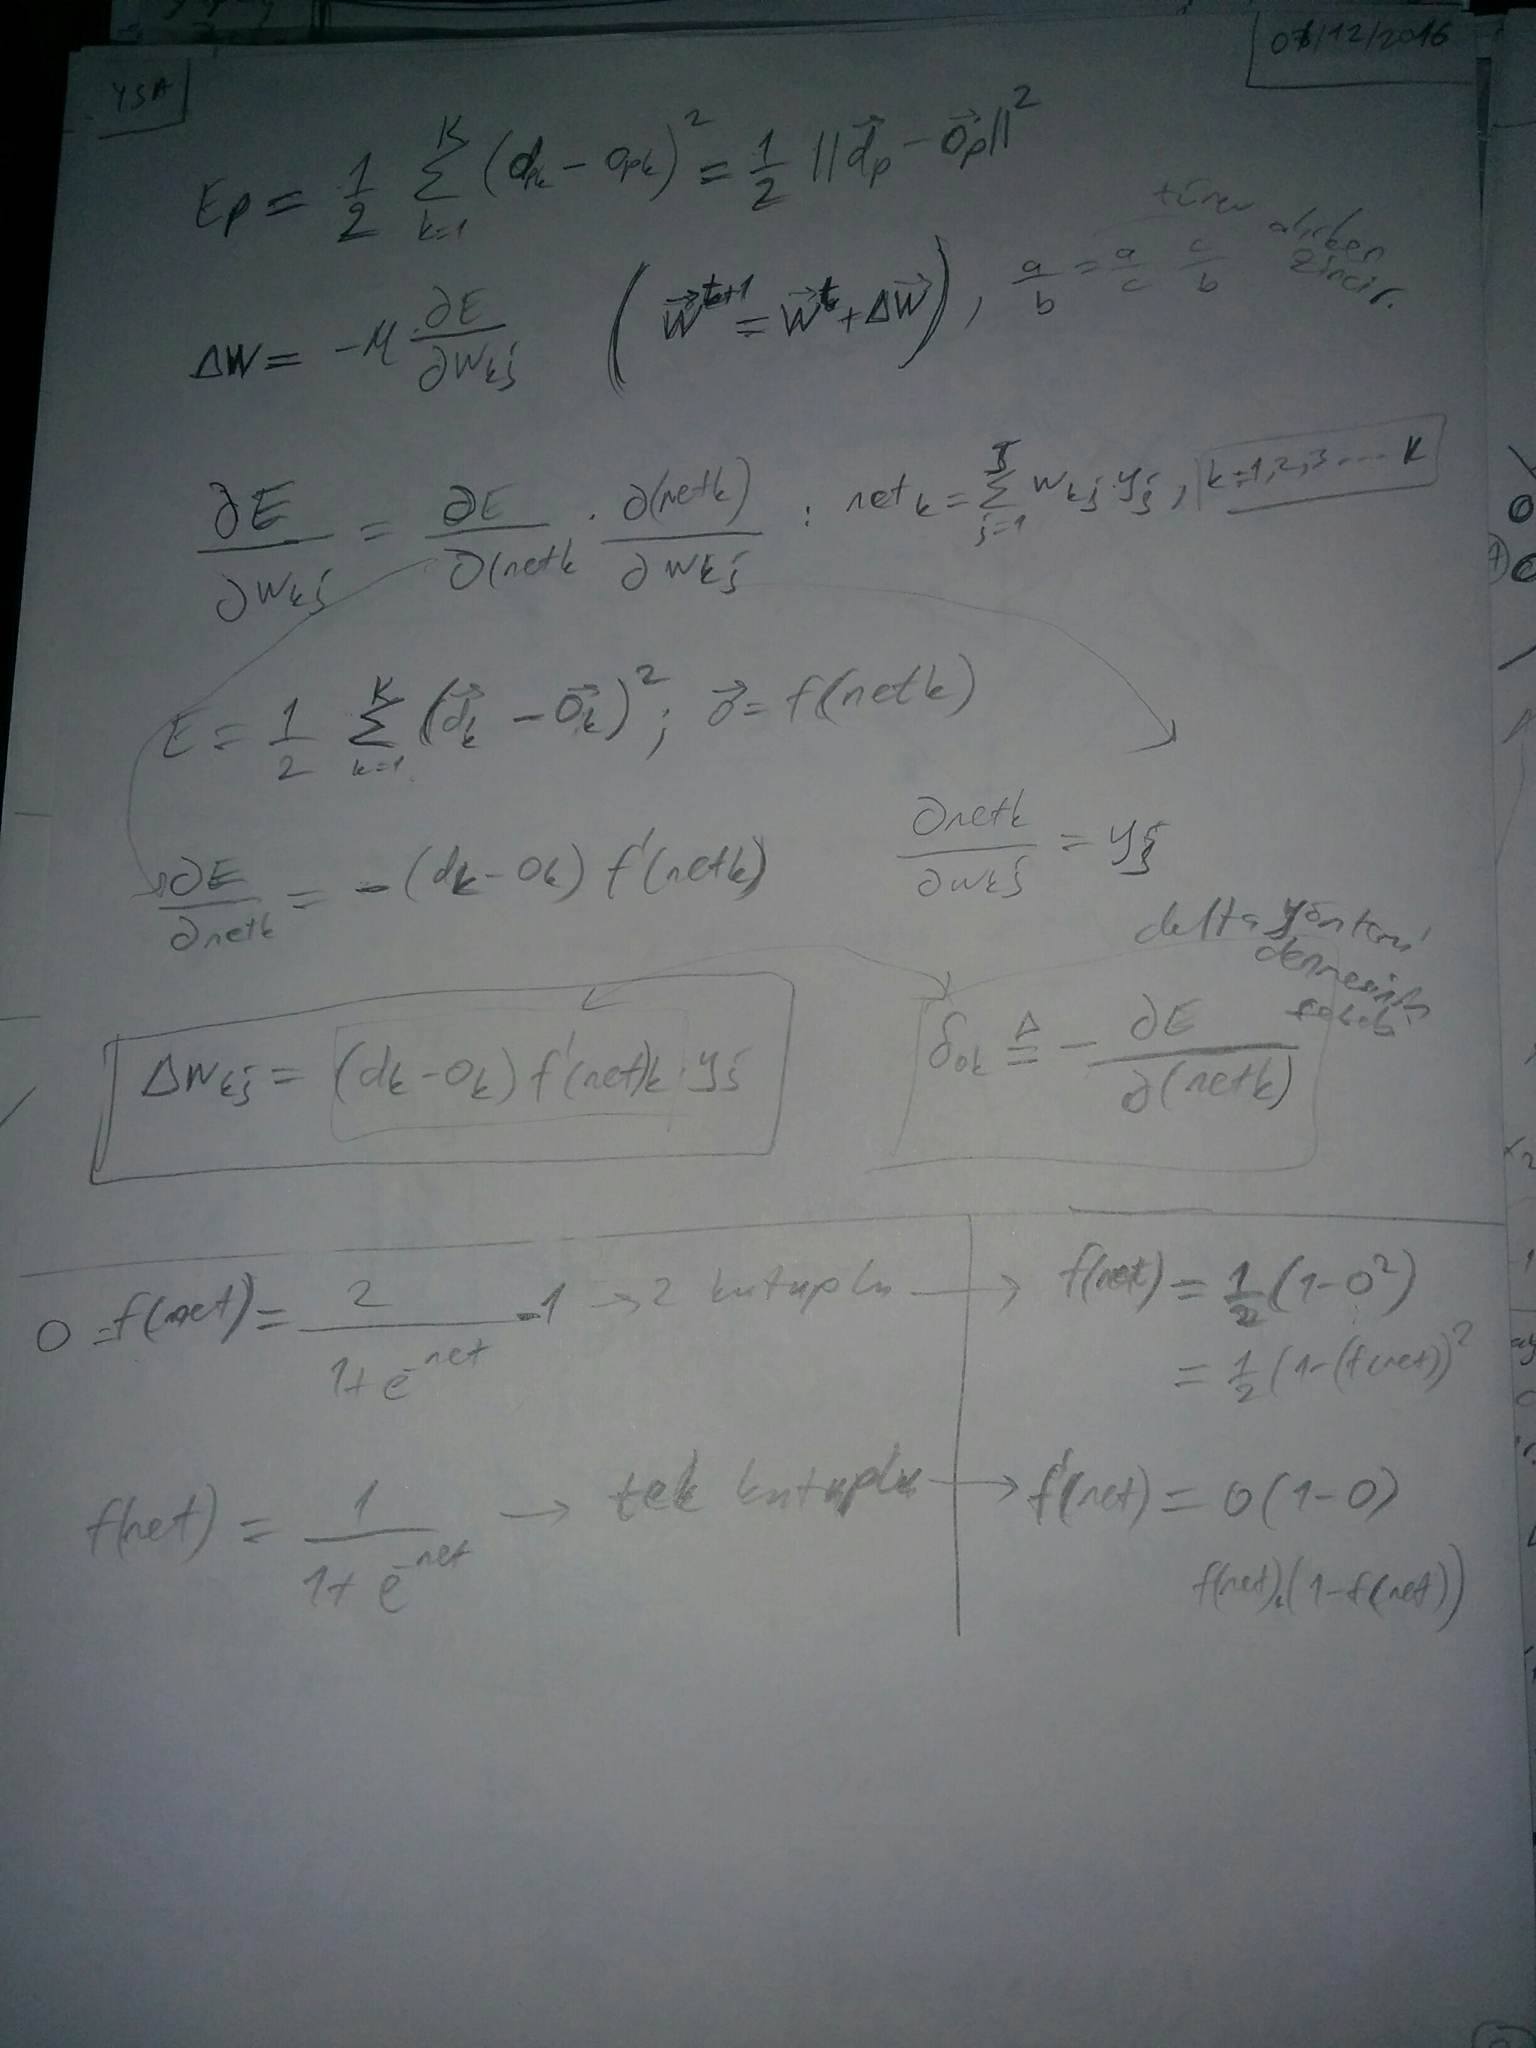 YSA
07/12/2016
Ep = 1/2 Σ_{k=1}^{K} (d_pk - o_pk)² = 1/2 ||d⃗_p - o⃗_p||²
türev alırken zincir.
ΔW = -η ∂E/∂W_kj (W⃗^{t+1} = W⃗^t + ΔW⃗), a/b = a/c c/b
∂E/∂W_kj = ∂E/∂(netk · ∂(netk)/∂W_kj : net_k = Σ_{j=1}^{J} W_kj y_j, k=1,2,3....K
E = 1/2 Σ_{k=1}^{K} (d⃗_k - o⃗_k)²; o⃗ = f(netk)
∂E/∂netk = -(dk - ok) f'(netk) ∂netk/∂w_kj = y_j
delta yöntemi
denmesinin
sebeb
ΔW_kj = (d_k - o_k) f'(net)k · y_j δ_ok ≜ - ∂E/∂(netk)
O = f(net) = 2/(1+e^{-net}) - 1 → 2 kutuplu → f(net) = 1/2 (1-O²)
= 1/2 (1-(f(net))²
f(net) = 1/(1+e^{-net}) → tek kutuplu → f'(net) = O(1-O)
f(net).(1-f(net))